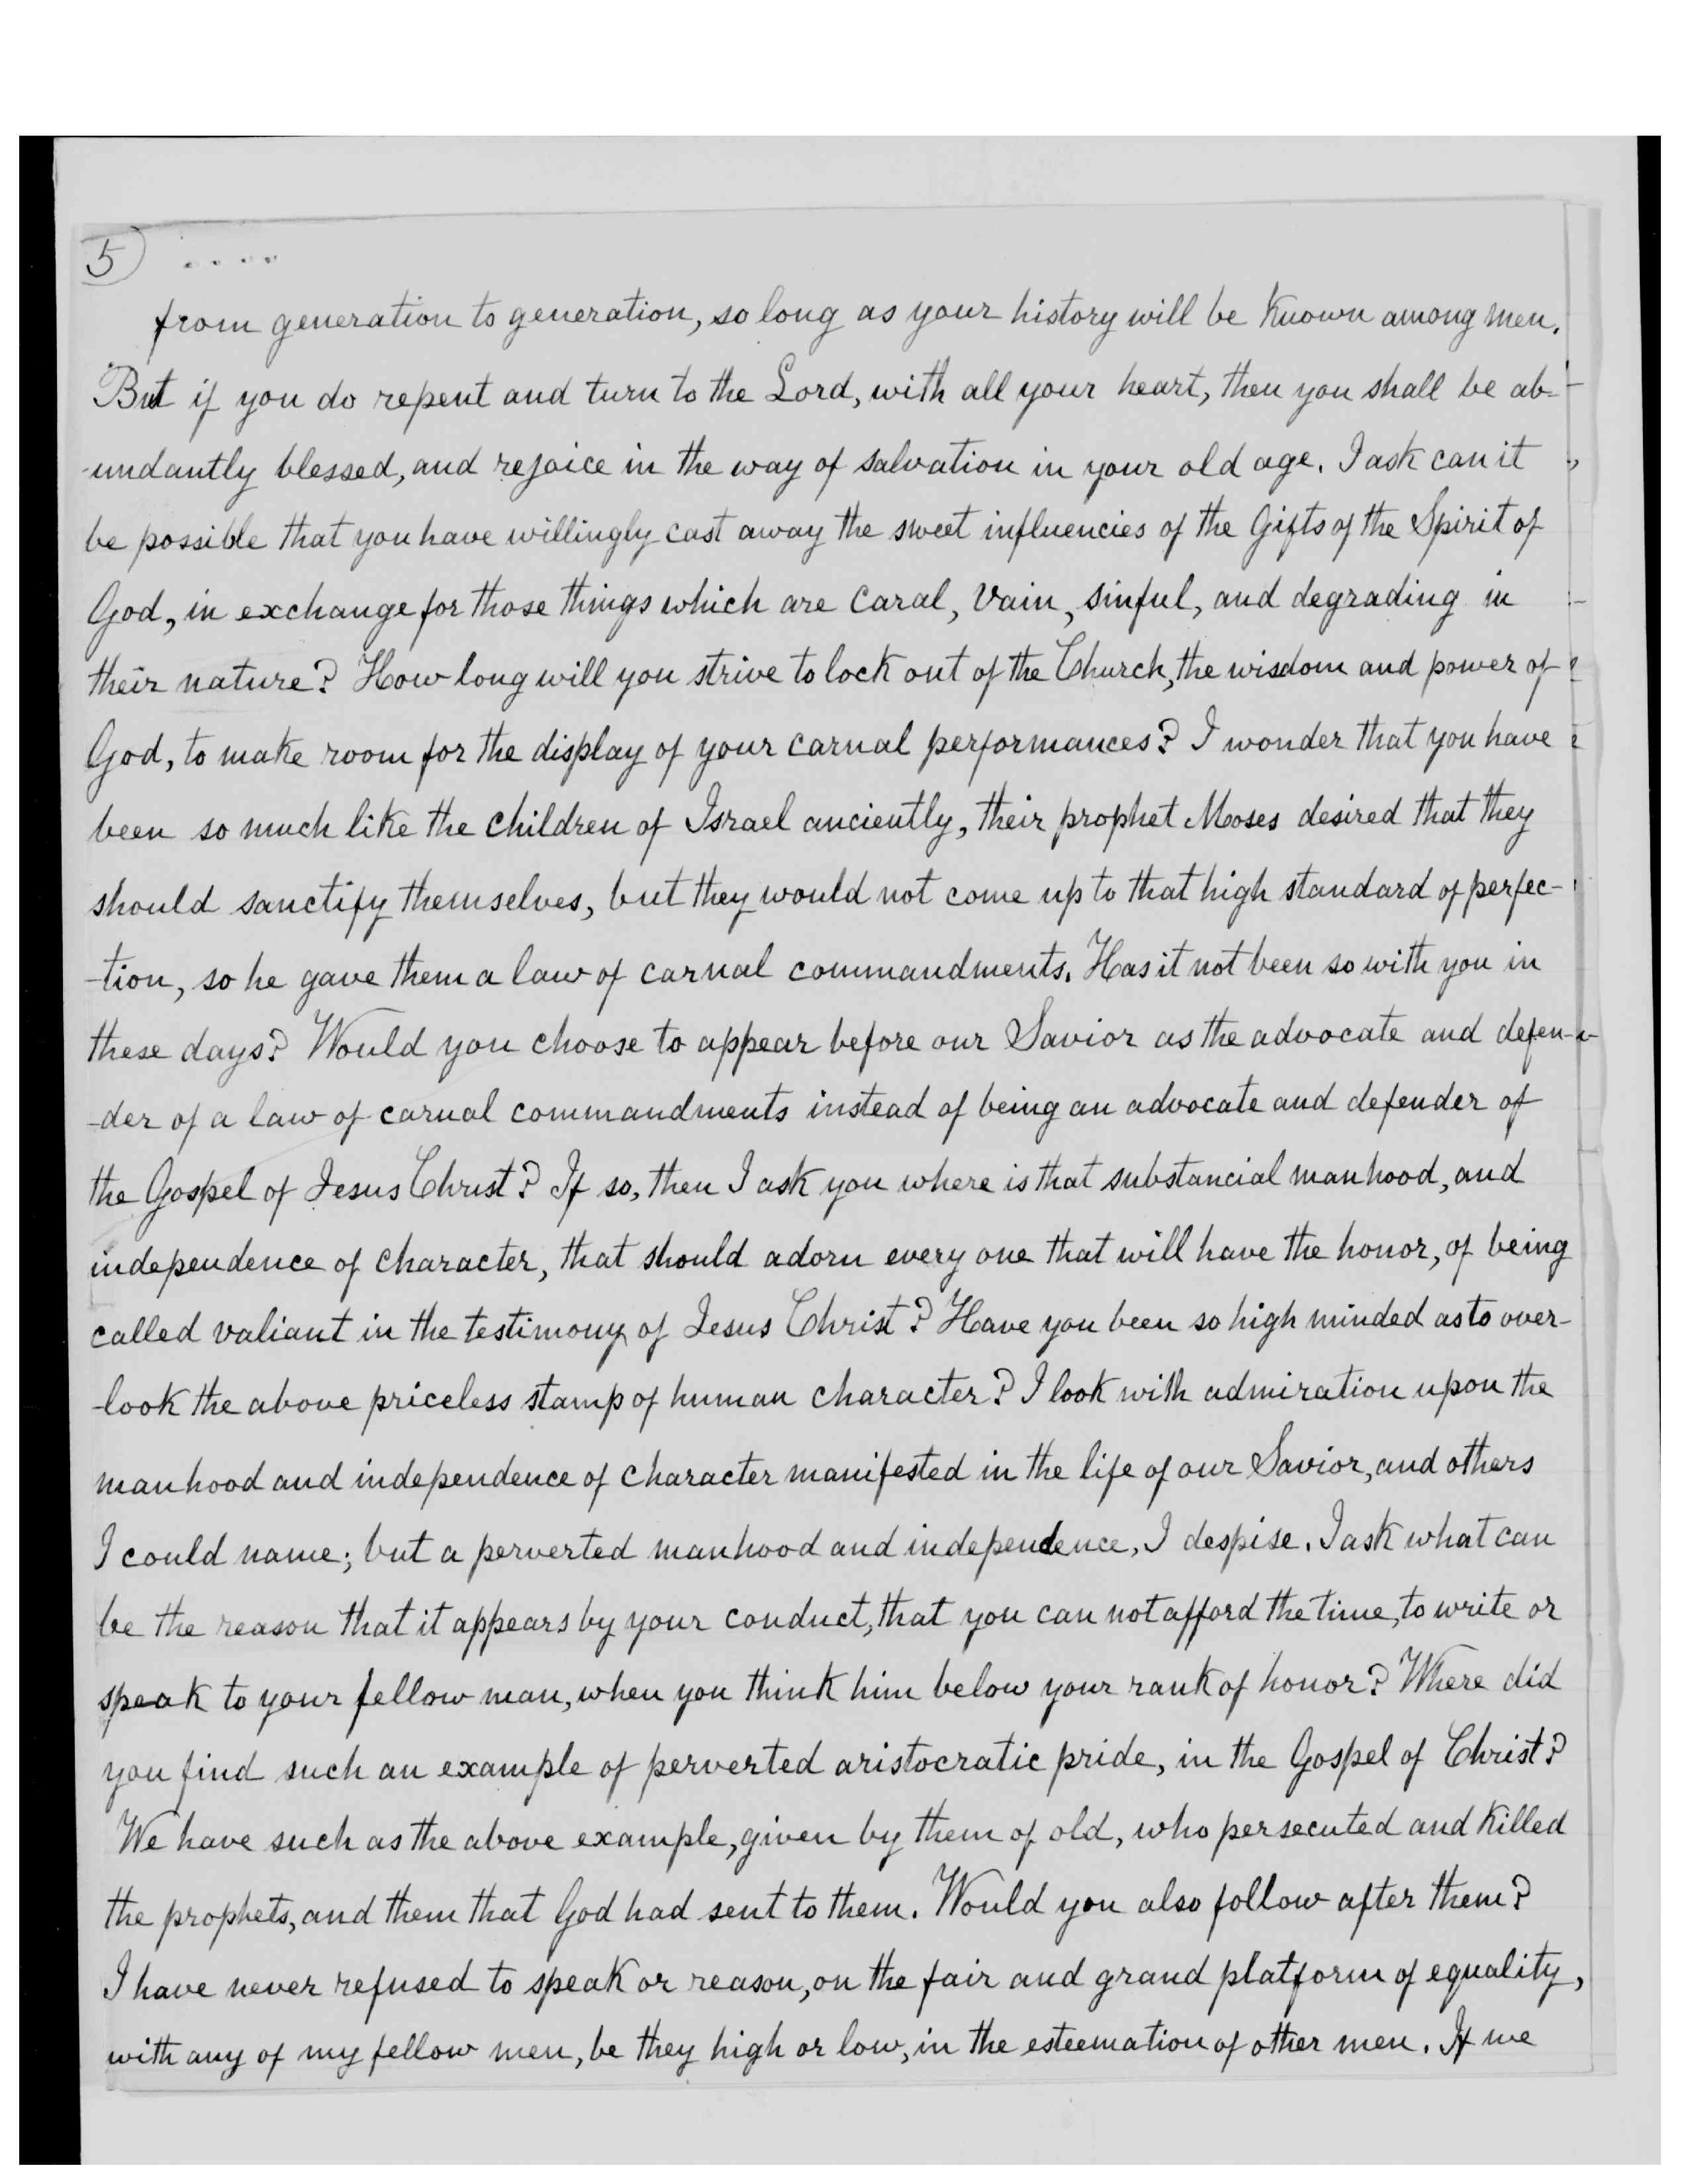 5) ....
from generation to generation, so long as your history will be known among men.
But if you do repent and turn to the Lord, with all your heart, then you shall be ab-
-undantly blessed, and rejoice in the way of salvation in your old age. I ask can it
be possible that you have willingly cast away the sweet influencies of the Gifts of the Spirit of
God, in exchange for those things which are caral, vain, sinful, and degrading in
their nature? How long will you strive to lock out of the Church, the wisdom and power of
God, to make room for the display of your carnal performances? I wonder that you have
been so much like the children of Israel anciently, their prophet Mooses desired that they
should sanctify themselves, but they would not come up to that high standard of perfec-
-tion, so he gave them a law of carnal commandments. Has it not been so with you in
these days? Would you choose to appear before our Savior as the advocate and defen-
-der of a law of carnal commandments instead of being an advocate and defender of
the Gospel of Jesus Christ? If so, then I ask you where is that substancial manhood, and
independence of character, that should adorn every one that will have the honor, of being
called valiant in the testimony of Jesus Christ? Have you been so high minded as to over-
-look the above priceless stamp of human character? I look with admiration upon the
manhood and independence of character manifested in the life of our Savior, and others
I could name; but a perverted manhood and independence, I despise. I ask what can
be the reason that it appears by your conduct, that you can not afford the time, to write or
speak to your fellow man, when you think him below your rank of honor? Where did
you find such an example of perverted aristocratic pride, in the Gospel of Christ?
We have such as the above example, given by them of old, who persecuted and killed
the prophets, and them that God had sent to them. Would you also follow after them?
I have never refused to speak or reason, on the fair and grand platform of equality,
with any of my fellow men, be they high or low, in the esteemation of other men. If we